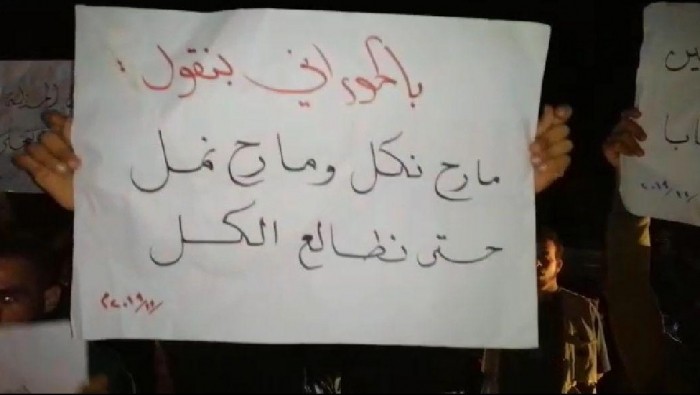 بالحوراني بنقول :
مارح نكل ومارح نمل
حتى نطالع الكل